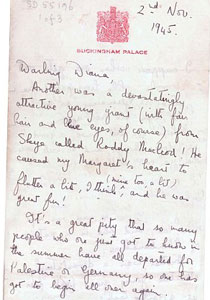 SD 55196
1 of 3
2nd. Nov.
1945.
BUCKINGHAM PALACE
Darling Diana,
Another was a devastatingly
attractive young giant (with fair
hair and blue eyes, of course) from
Skye called Roddy Macleod! He
caused my Margaret's heart to
flutter a bit, I think, and he was
(mine too, a bit)
great fun!
It's a great pity that so many
people who one just got to know in
the summer have all departed for
Palestine or Germany, so one has
got to begin all over again.